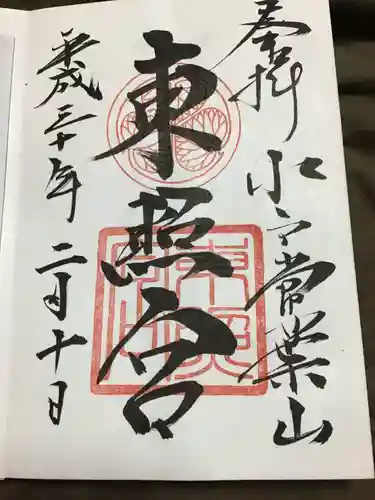 奉拝 水戸常葉山
東照宮
平成三十年二月十日